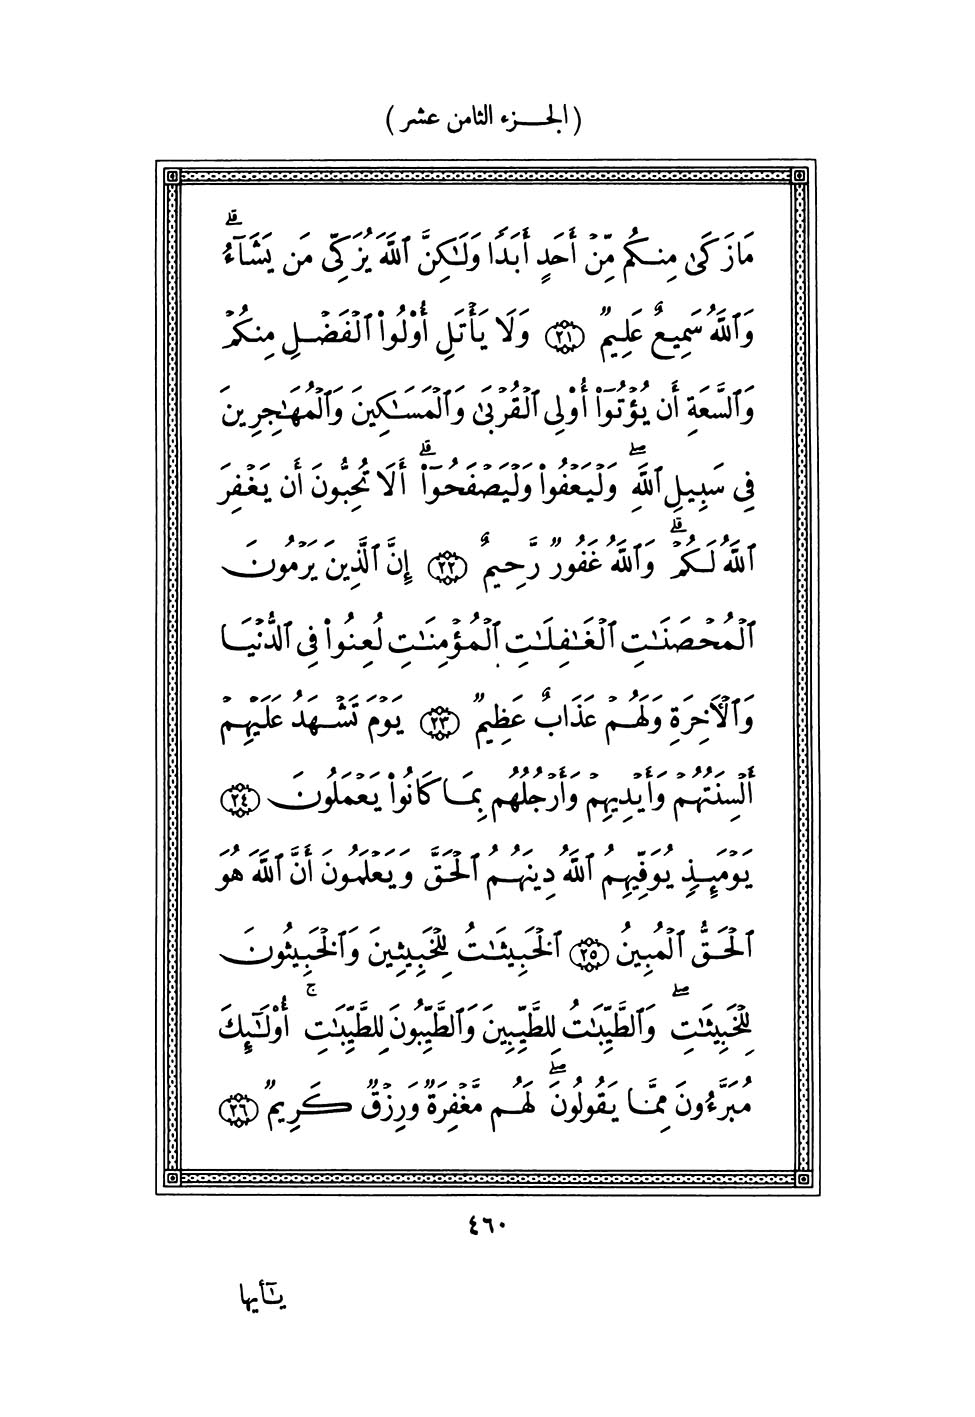 (الجزء الثامن عشر)
مَا زَكَىٰ مِنكُم مِّنْ أَحَدٍ أَبَدًا وَلَـٰكِنَّ ٱللَّهَ يُزَكِّى مَن يَشَآءُ ۗ
وَٱللَّهُ سَمِيعٌ عَلِيمٌ ﴿٢١﴾ وَلَا يَأْتَلِ أُو۟لُوا۟ ٱلْفَضْلِ مِنكُمْ
وَٱلسَّعَةِ أَن يُؤْتُوٓا۟ أُو۟لِى ٱلْقُرْبَىٰ وَٱلْمَسَـٰكِينَ وَٱلْمُهَـٰجِرِينَ
فِى سَبِيلِ ٱللَّهِ ۖ وَلْيَعْفُوا۟ وَلْيَصْفَحُوٓا۟ ۗ أَلَا تُحِبُّونَ أَن يَغْفِرَ
ٱللَّهُ لَكُمْ ۗ وَٱللَّهُ غَفُورٌ رَّحِيمٌ ﴿٢٢﴾ إِنَّ ٱلَّذِينَ يَرْمُونَ
ٱلْمُحْصَنَـٰتِ ٱلْغَـٰفِلَـٰتِ ٱلْمُؤْمِنَـٰتِ لُعِنُوا۟ فِى ٱلدُّنْيَا
وَٱلْـَٔاخِرَةِ وَلَهُمْ عَذَابٌ عَظِيمٌ ﴿٢٣﴾ يَوْمَ تَشْهَدُ عَلَيْهِمْ
أَلْسِنَتُهُمْ وَأَيْدِيهِمْ وَأَرْجُلُهُم بِمَا كَانُوا۟ يَعْمَلُونَ ﴿٢٤﴾
يَوْمَئِذٍ يُوَفِّيهِمُ ٱللَّهُ دِينَهُمُ ٱلْحَقَّ وَيَعْلَمُونَ أَنَّ ٱللَّهَ هُوَ
ٱلْحَقُّ ٱلْمُبِينُ ﴿٢٥﴾ ٱلْخَبِيثَـٰتُ لِلْخَبِيثِينَ وَٱلْخَبِيثُونَ
لِلْخَبِيثَـٰتِ ۖ وَٱلطَّيِّبَـٰتُ لِلطَّيِّبِينَ وَٱلطَّيِّبُونَ لِلطَّيِّبَـٰتِ ۚ أُو۟لَـٰٓئِكَ
مُبَرَّءُونَ مِمَّا يَقُولُونَ ۖ لَهُم مَّغْفِرَةٌ وَرِزْقٌ كَرِيمٌ ﴿٢٦﴾
٤٦٠
يَـٰٓأيها